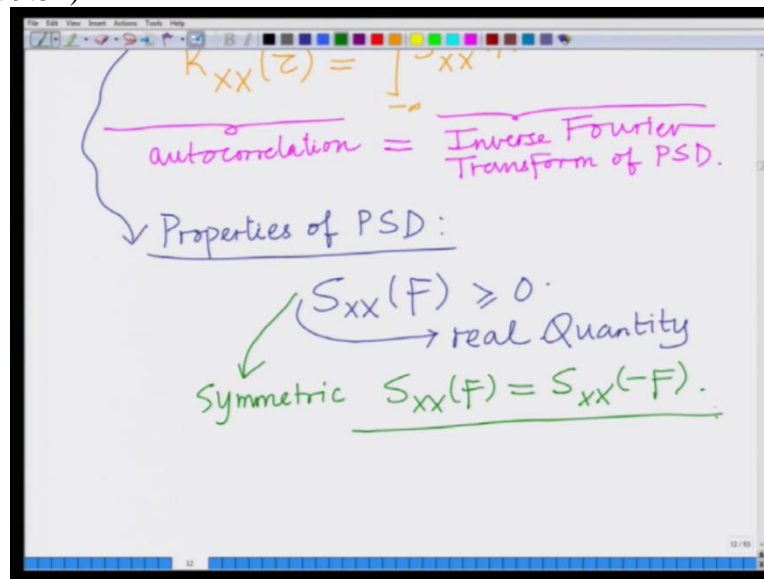 File Edit View Insert Actions Tools Help
R_XX(τ) = ∫_{-∞} S_XX
autocorrelation = Inverse Fourier
Transform of PSD.
Properties of PSD:
S_XX(F) ≥ 0.
real Quantity
Symmetric S_XX(F) = S_XX(-F).
12